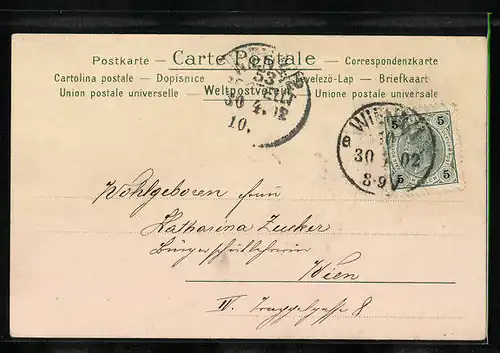 Postkarte — Carte Postale — Correspondenzkarte
Cartolina postale — Dopisnice — Levelező-Lap — Briefkaart
Union postale universelle — Weltpostverein — Unione postale universale
WIEN
53
30 4. 02
10.
WIEN
30 02
8-9V
5 5
5 5
Wohlgeboren
Katharina Zucker
Bürgerschullehrerin
Wien
IV. Trappelgasse 8